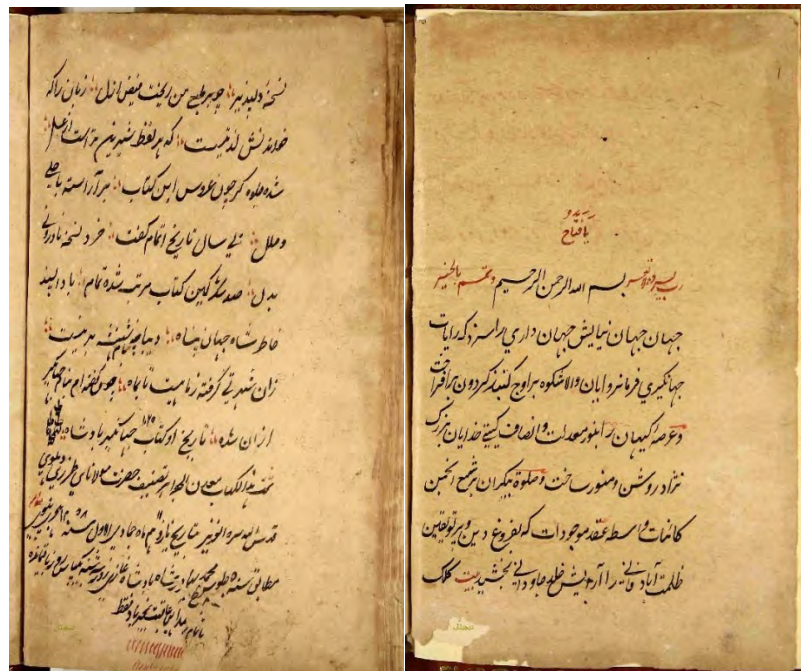 یا فتاح
رب یسر ولا تعسر بسم الله الرحمن الرحیم وتمم بالخیر
جهان جهان نیایش جهان داری را سزد که رایات
جهانگیری فرمانروایان والاشکوه بر اوج گنبد گردون برافراخت
وعرصه گیهان را بنور معدلت وانصاف گیتی خدایان بزرگ
نژاد روشن ومنور ساخت وصلوة بیکران بر شمع انجمن
کائنات واسطه عقد موجودات که بفروغ دین وپرتو یقین
ظلمت آباد فانی را آرایش خلد جاودانی بخشید بیت کلک
نسخه دلپذیر چو بر طبع من ریخت فیض ازل زبان را که
خواندنش لذتیست که هر لفظ شیرین تر است از عسل
شده جلوه گر چون عروس این کتاب بر آراسته با حلی
وحلل پی سال تاریخ اتمام گفت خرد نسخه نادر وبی
بدل صد شکر کین کتاب مرتب شده تمام بادا پسند
خاطر شاه جهان پناه دیباچه
زان شهرتی گرفته ز ماهیست تا بماه چون گفته ام بنام جهانگیر
ازان شده تاریخ او کتاب جهانگیر بادشاه
تمت هذا الکتاب معدن الجواهر تصنیف حضرت مولانای طرزی دهلوی
قدس الله سره العزیز بتاریخ یازدهم ماه جمادی الاول سنه
مطابق سنه محمد بهادر شاه بادشاه غازی روز